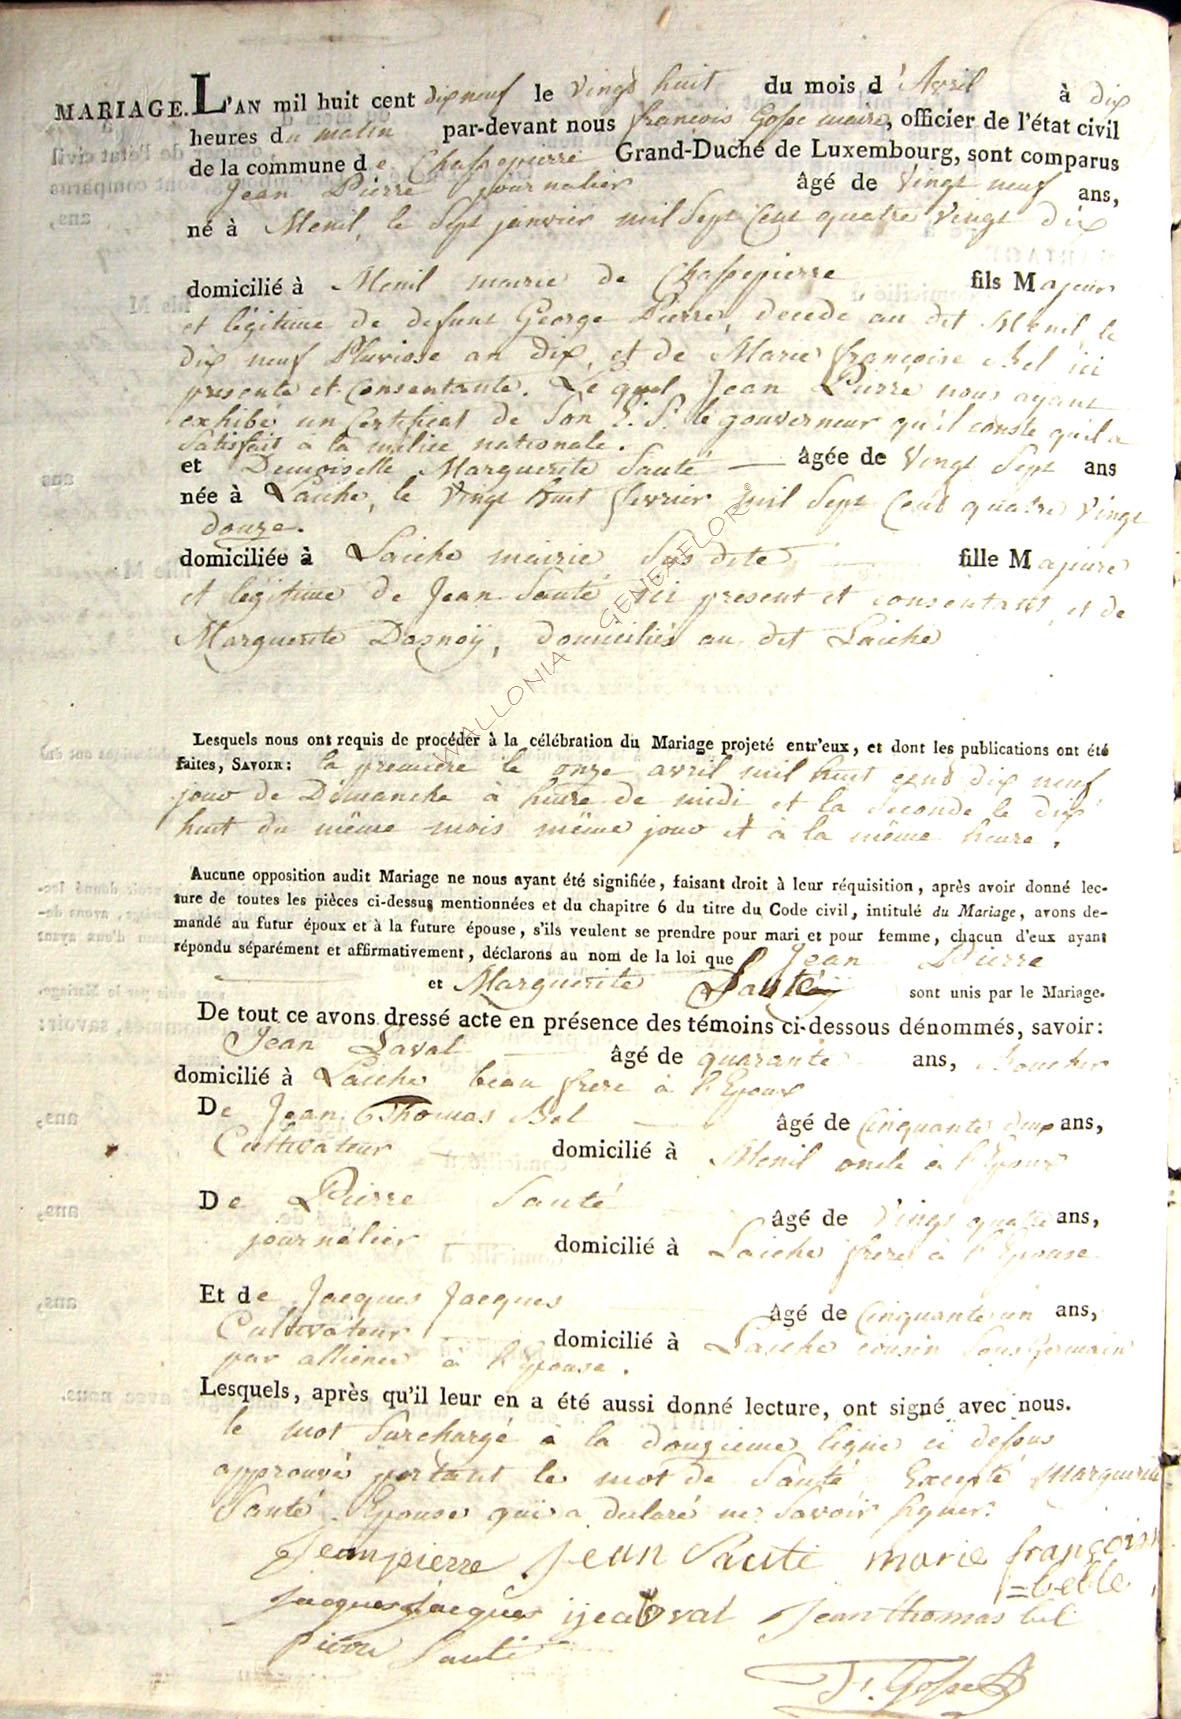 MARIAGE. L'AN mil huit cent dixneuf le vingt huit du mois d'Avril à dix
heures du matin par-devant nous françois Gosse maire, officier de l'état civil
de la commune de Chassepierre Grand-Duché de Luxembourg, sont comparus
Jean Pierre journalier âgé de vingt neuf ans,
né à Menil, le Sept janvier mil Sept Cent quatre vingt dix
domicilié à Menil mairie de Chassepierre fils Majeur
et légitime de defunt George Pierre, decedé au dit Menil, le
dix neuf Pluviose an dix, et de Marie françoise Bel ici
presente et Consentante. Le quel Jean Pierre nous ayant
exhibé un Certificat de Son E. S. le gouverneur qu'il conste qu'il a
Satisfait à la milice nationale.
et Demoiselle Marguerite Sauté âgée de Vingt Sept ans
née à Laiche, le Vingt huit fevrier mil Sept Cent quatre vingt
douze.
domiciliée à Laiche mairie Sus dite fille Majeure
et légitime de Jean Sauté ici present et consentant, et de
Marguerite Dasnoÿ, domiciliés au dit Laiche
WALLONIA GENEAFLOR©
Lesquels nous ont requis de procéder à la célébration du Mariage projeté entr'eux, et dont les publications ont été
faites, SAVOIR: la premiere le onze avril mil huit cent dix neuf
jour de Dimanche à heure de midi et la Seconde le dix
huit du même mois même jour et à la même heure.
Aucune opposition audit Mariage ne nous ayant été signifiée, faisant droit à leur réquisition, après avoir donné lec-
ture de toutes les pièces ci-dessus mentionnées et du chapitre 6 du titre du Code civil, intitulé du Mariage, avons de-
mandé au futur époux et à la future épouse, s'ils veulent se prendre pour mari et pour femme, chacun d'eux ayant
répondu séparément et affirmativement, déclarons au nom de la loi que Jean Pierre
et Marguerite Sauté sont unis par le Mariage.
De tout ce avons dressé acte en présence des témoins ci-dessous dénommés, savoir:
Jean Laval âgé de quarante ans, Boucher
domicilié à Laiche beau frere à l'Epoux
De Jean Thomas Bel âgé de Cinquante deux ans,
Cultivateur domicilié à Menil oncle à l'Epoux
De Pierre Sauté âgé de Vingt quatre ans,
journalier domicilié à Laiche frere à l'Epouse
Et de Jacques Jacques âgé de Cinquante un ans,
Cultivateur domicilié à Laiche cousin Sous Germain
par allience à l'Epouse.
Lesquels, après qu'il leur en a été aussi donné lecture, ont signé avec nous.
le mot Surchargé à la douzieme ligne ci dessus
approuvé portant le mot de Sauté Excepté Marguerite
Sauté Epouse qui a declaré ne Savoir Signer.
Jeanpierre Jean Sauté marie françoise
=belle
Jacques Jacques Jean Thomas bel
Pierre Sauté
Fs. Gosse